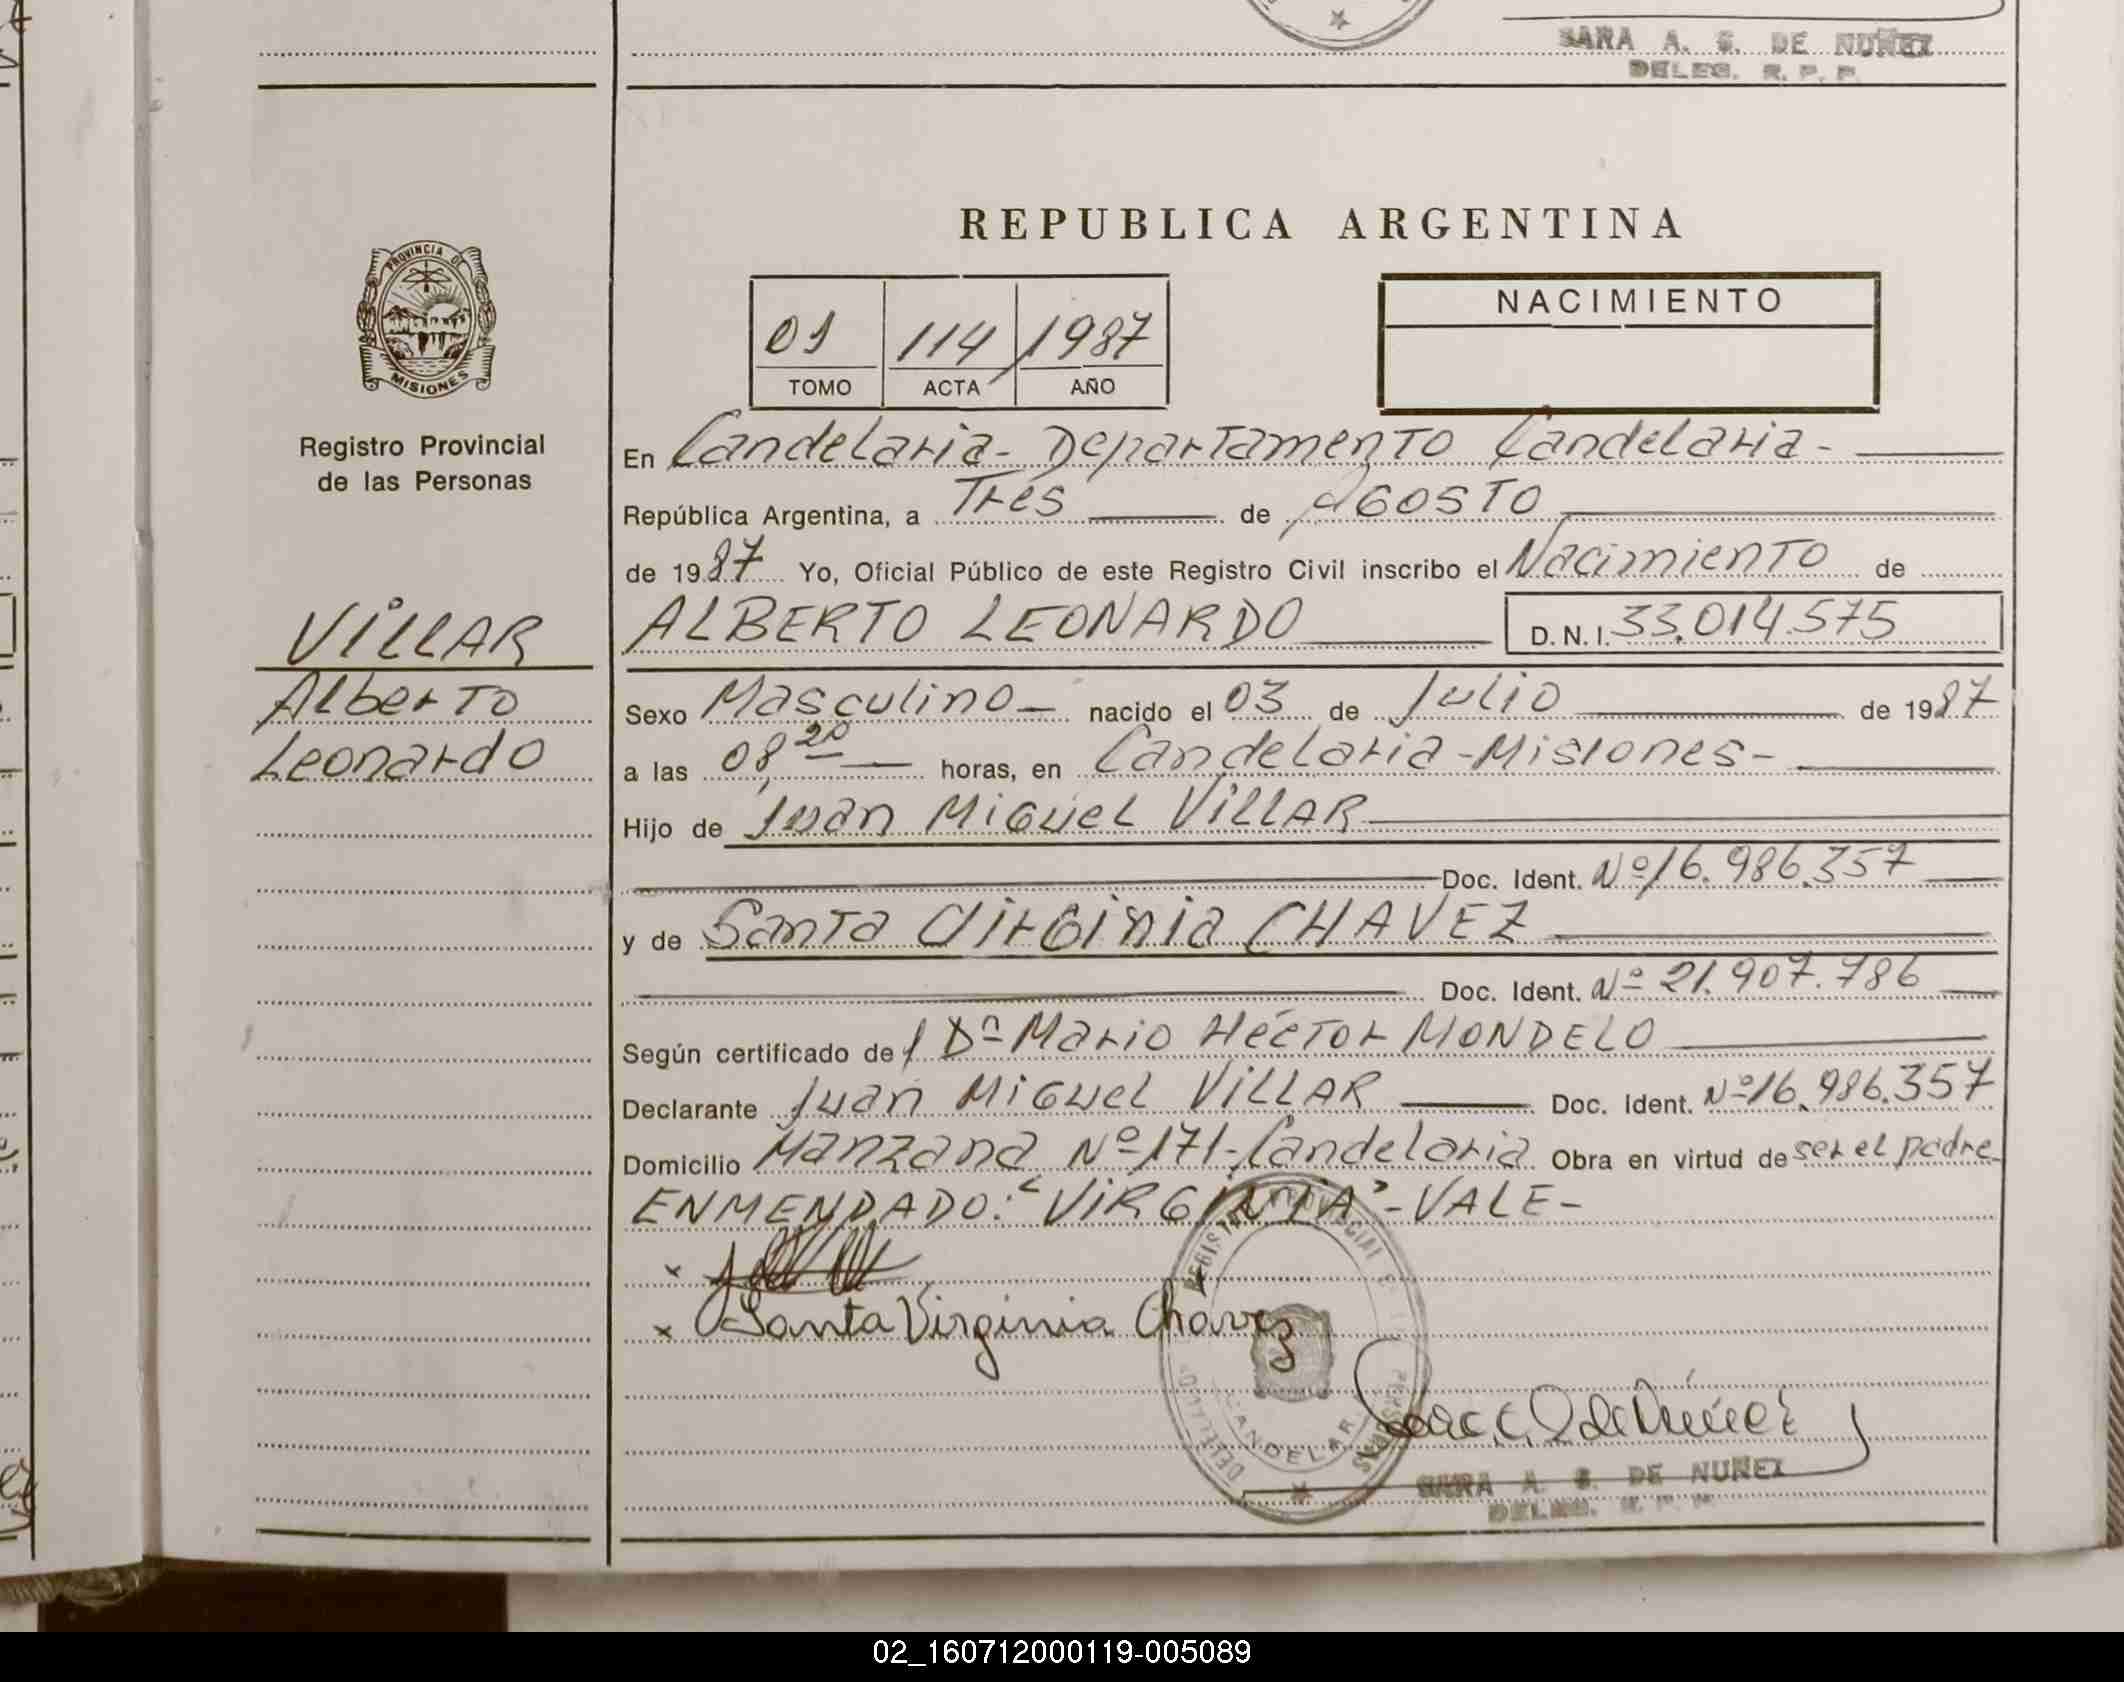 SARA A. S. DE NUÑEZ
DELEG. R. P. P.
REPUBLICA ARGENTINA
PROVINCIA DE
MISIONES
Registro Provincial
de las Personas
01 114 1987
TOMO ACTA AÑO
NACIMIENTO
En Candelaria - Departamento Candelaria -
República Argentina, a Tres de Agosto
de 1987 Yo, Oficial Público de este Registro Civil inscribo el Nacimiento de
VILLAR
Alberto
Leonardo
ALBERTO LEONARDO D. N. I. 33.014.575
Sexo Masculino - nacido el 03 de Julio de 1987
a las 08,20 horas, en Candelaria - Misiones -
Hijo de Juan Miguel VILLAR
Doc. Ident. Nº 16.986.357
y de Santa Virginia CHAVEZ
Doc. Ident. Nº 21.907.786
Según certificado de Mario Héctor MONDELO
Declarante Juan Miguel VILLAR Doc. Ident. Nº 16.986.357
Domicilio Manzana Nº 171 - Candelaria Obra en virtud de ser el padre
ENMENDADO: "VIRGINIA" - VALE -
x
x Santa Virginia Chavez
CANDELARIA
SARA A. S. DE NUÑEZ
DELEG. R. P. P.
02_160712000119-005089